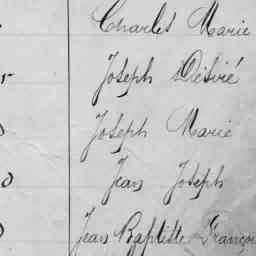 Charles Marie
Joseph Désiré
Joseph Marie
Jean Joseph
Jean Baptiste Françoi